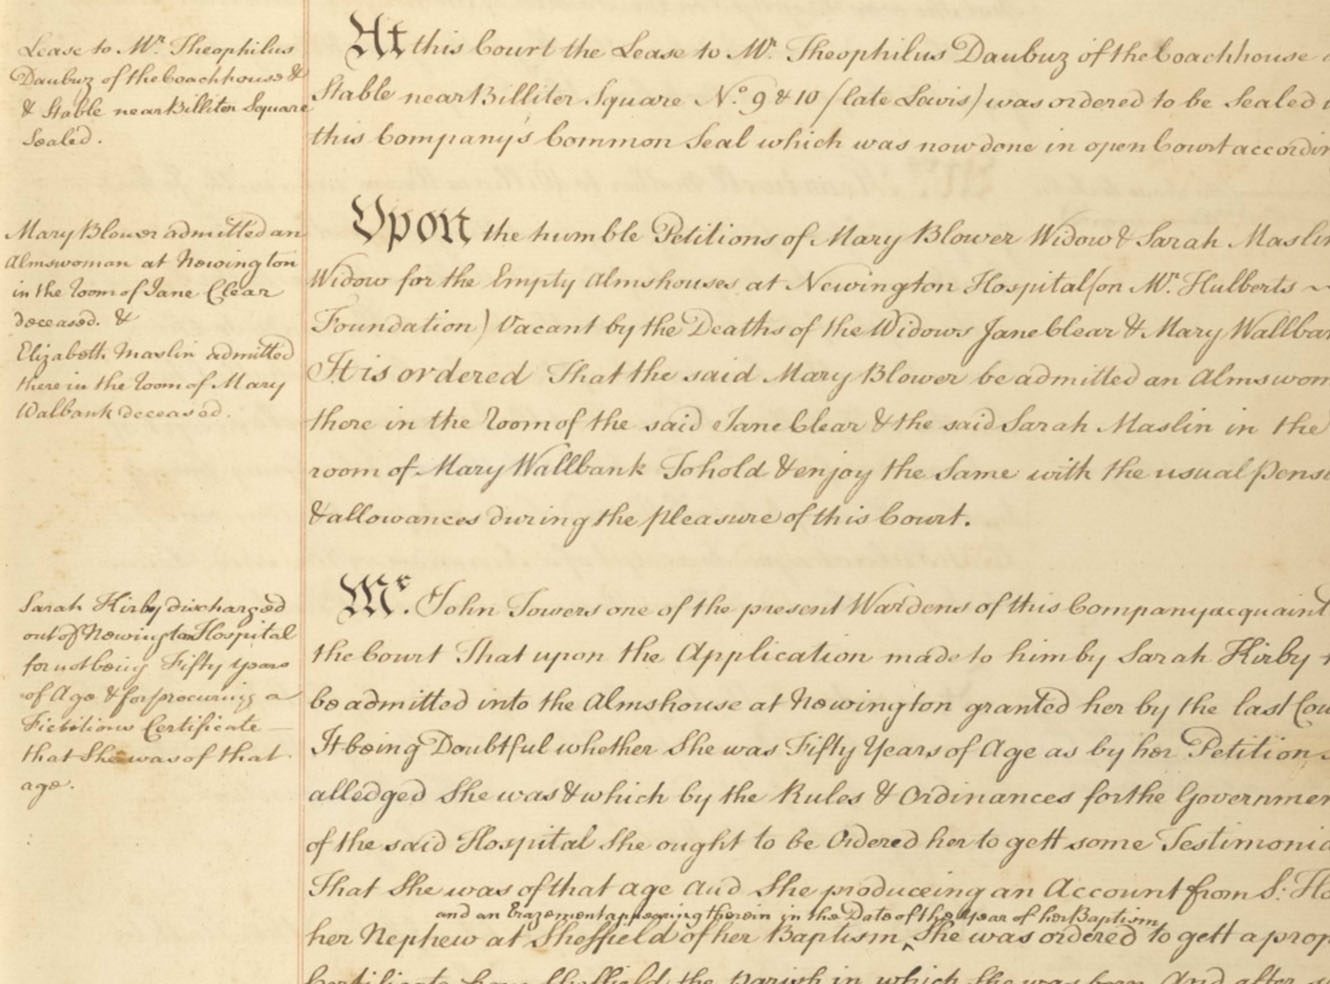 Lease to Mr. Theophilus
Daubuz of the Coachhouse &
& Stable near Billiter Square
Sealed.
At this Court the Lease to Mr. Theophilus Daubuz of the Coachhouse
Stable near Billiter Square No. 9 & 10 (late Lewis) was ordered to be Sealed
this Company's Common Seal which was now done in open Court accordin
Mary Blower admitted an
Almswoman at Newington
in the room of Jane Clear
deceased. &
Elizabeth Maslin admitted
there in the room of Mary
Walbank deceased.
Upon the humble Petitions of Mary Blower Widow & Sarah Maslin
Widow for the Empty Almshouses at Newington Hospital (on Mr. Hulberts ~
Foundation) Vacant by the Deaths of the Widows Jane Clear & Mary Wallban
It is ordered That the said Mary Blower be admitted an Almswom
there in the room of the said Jane Clear & the said Sarah Maslin in the
room of Mary Wallbank To hold & enjoy the Same with the usual Pensi
& allowances during the pleasure of this Court.
Sarah Kirby discharged
out of Newington Hospital
for not being Fifty years
of Age & for procuring a
Fictitious Certificate
that She was of that
age.
Mr. John Towers one of the present Wardens of this Company acquaint
the Court That upon the Application made to him by Sarah Kirby
be admitted into the Almshouse at Newington granted her by the last Cou
It being Doubtful whether She was Fifty Years of Age as by her Petition
alledged She was & which by the Rules & Ordinances for the Governmen
of the said Hospital She ought to be Ordered her to gett some Testimonia
That She was of that age and She produceing an Account from
and an Erazement appearing therein in the Date of the Year of her Baptism
her Nephew at Sheffield of her Baptism ‸ She was ordered to gett a prop
Certificate from Sheffield the Parish in which She was born And after